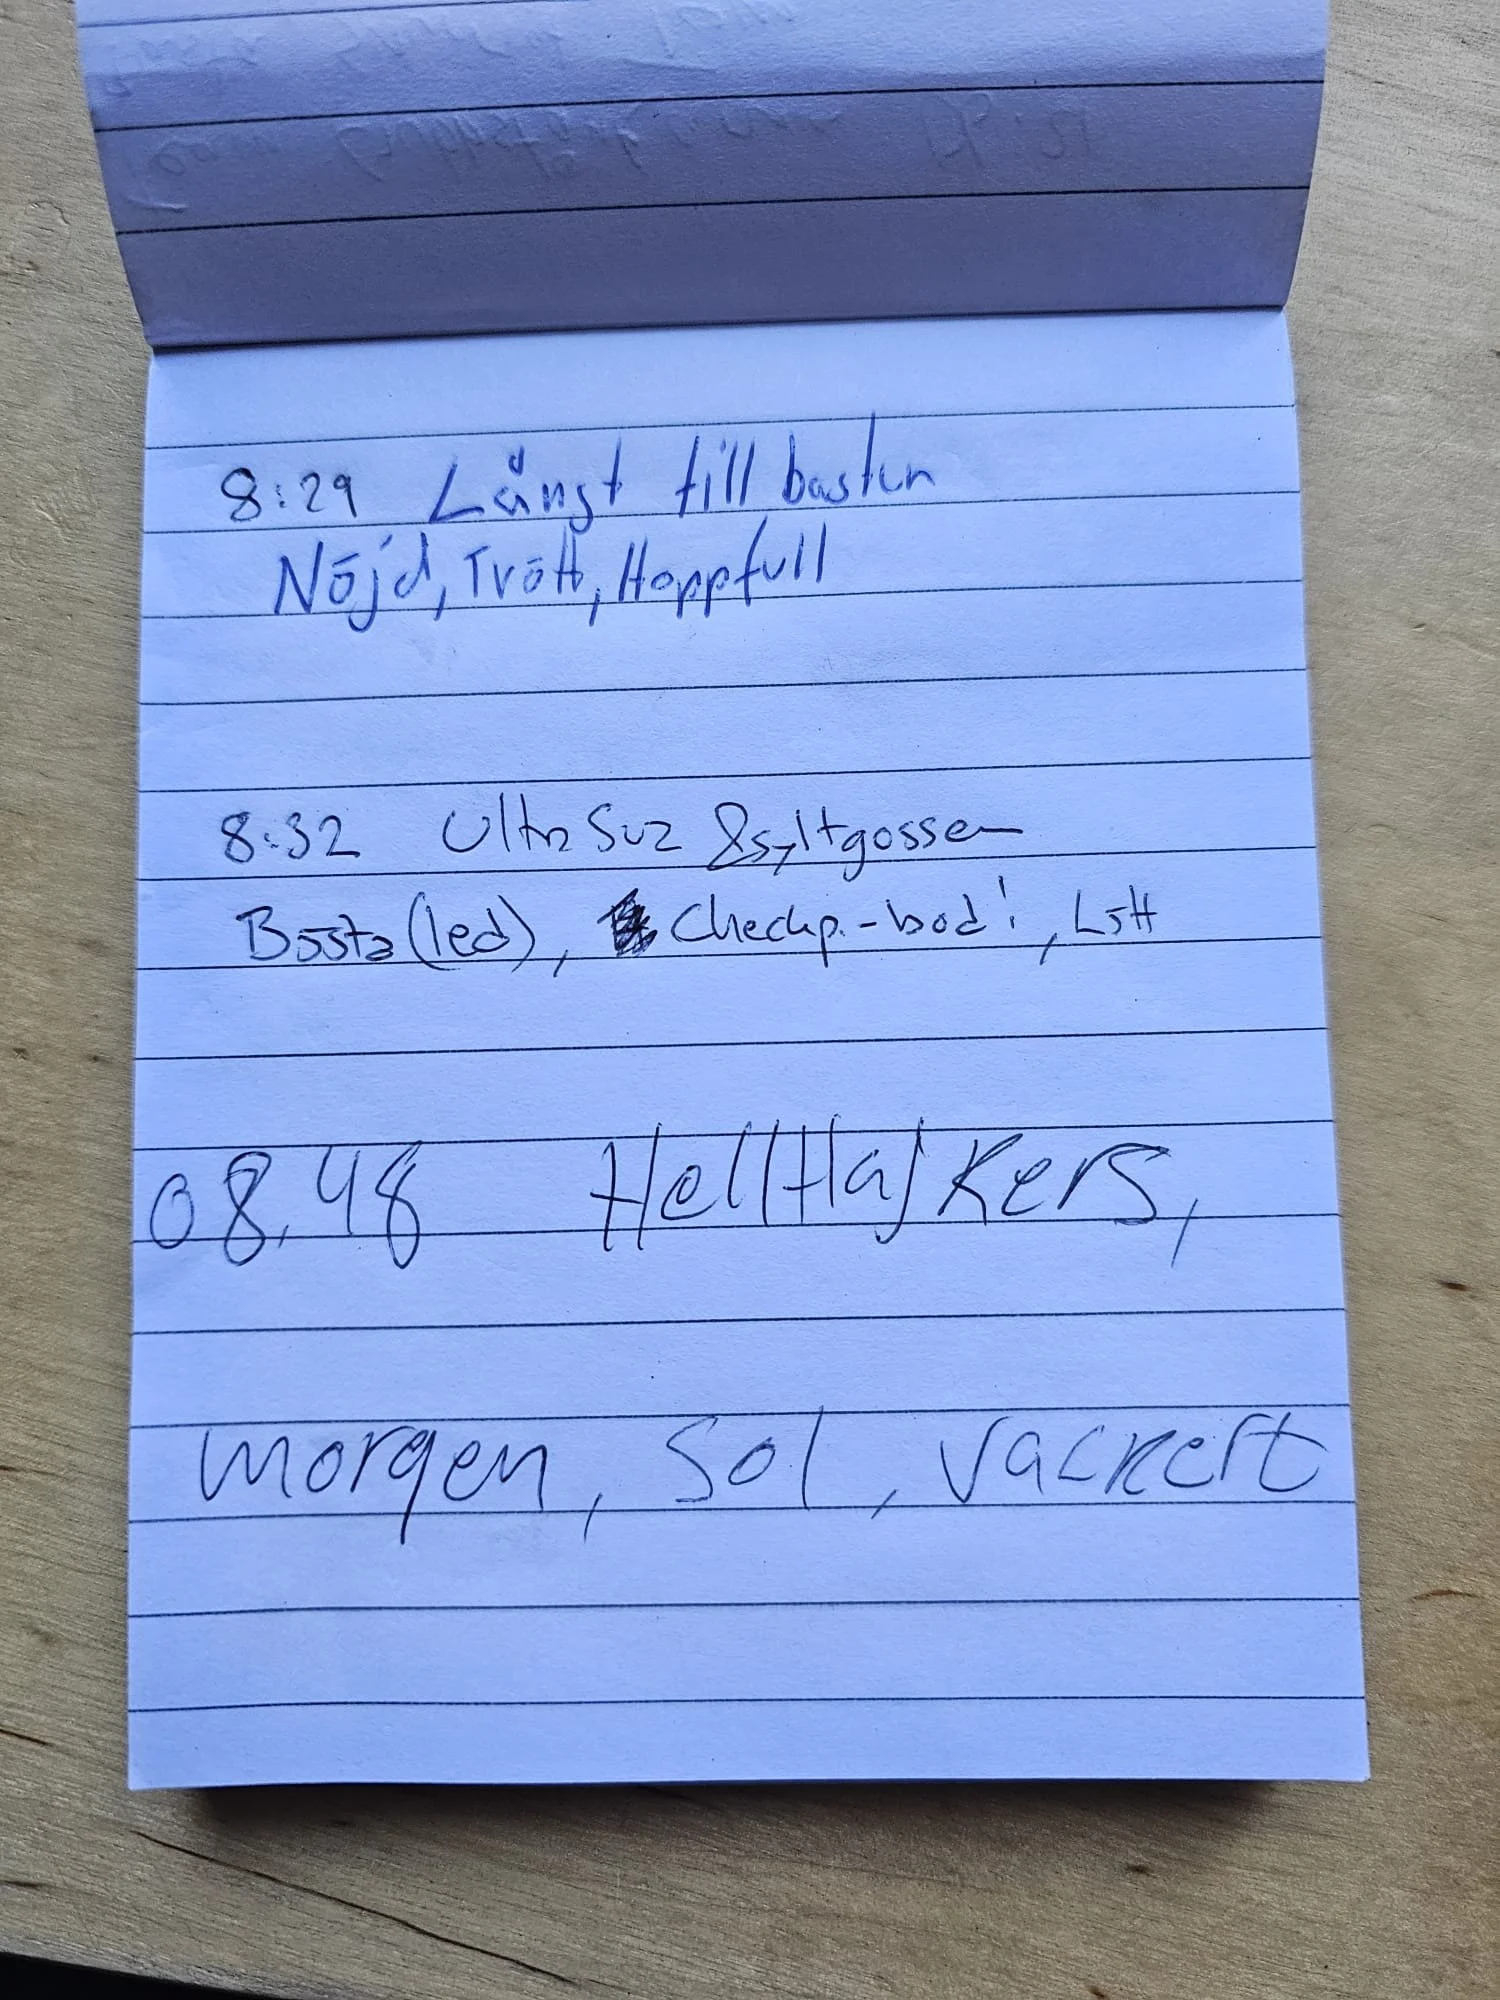 8:29 Långst till bastun
Nöjd, Trött, Hoppfull
8:32 Ultra Suz & syltgossen
Bästa (led), Checkp.-bad!, Lätt
08,48 HellHajkers,
morgen, Sol, vackert